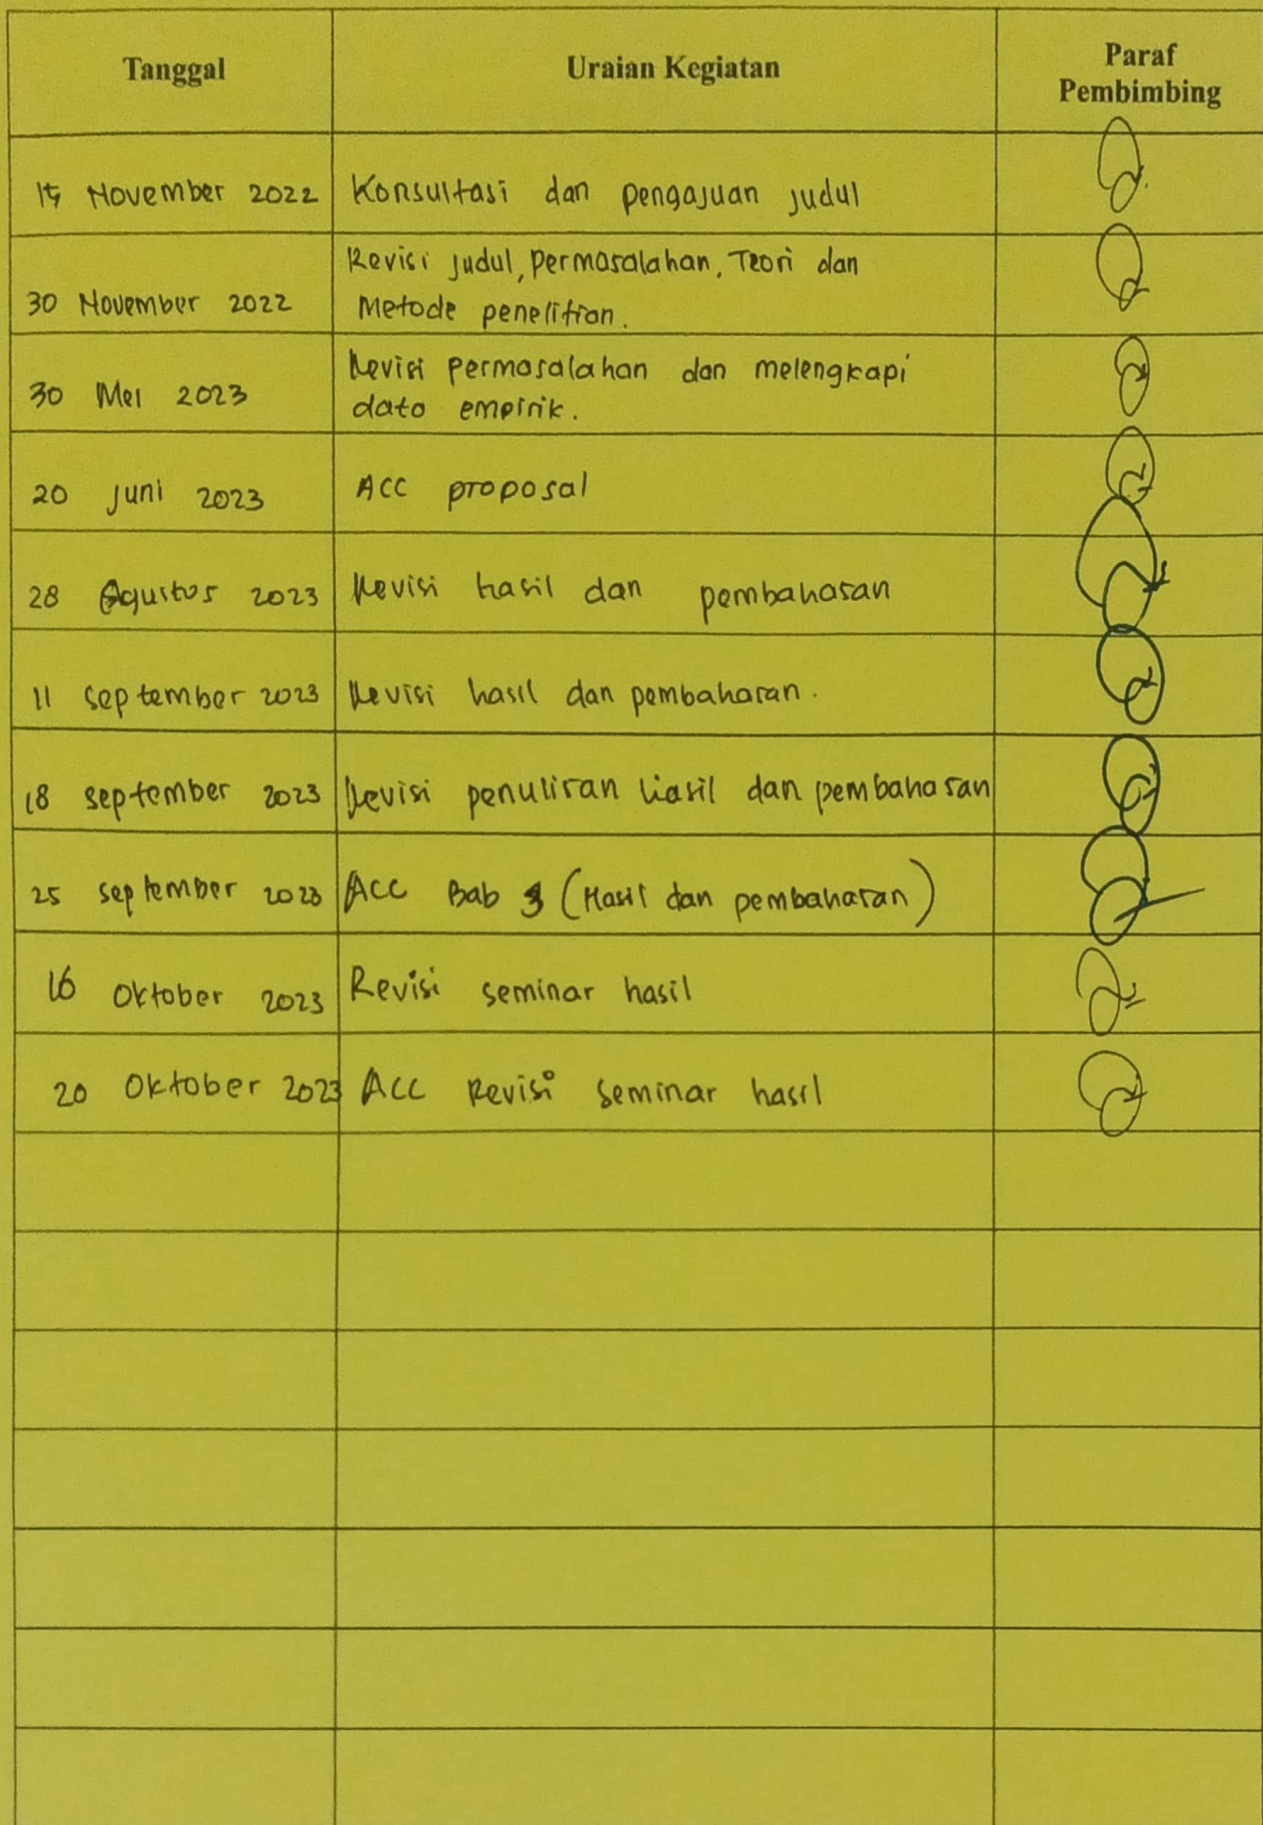 Tanggal Uraian Kegiatan Paraf
Pembimbing
15 November 2022 Konsultasi dan pengajuan judul
Revisi judul, permasalahan, Teori dan
30 November 2022 Metode penelitian.
Revisi permasalahan dan melengkapi
30 Mei 2023 data empirik.
20 Juni 2023 ACC proposal
28 Agustus 2023 Revisi hasil dan pembahasan
11 september 2023 Revisi hasil dan pembahasan.
18 september 2023 Revisi penulisan hasil dan pembahasan
25 september 2023 ACC Bab 3 (Hasil dan pembahasan)
16 Oktober 2023 Revisi seminar hasil
20 Oktober 2023 ACC Revisi seminar hasil